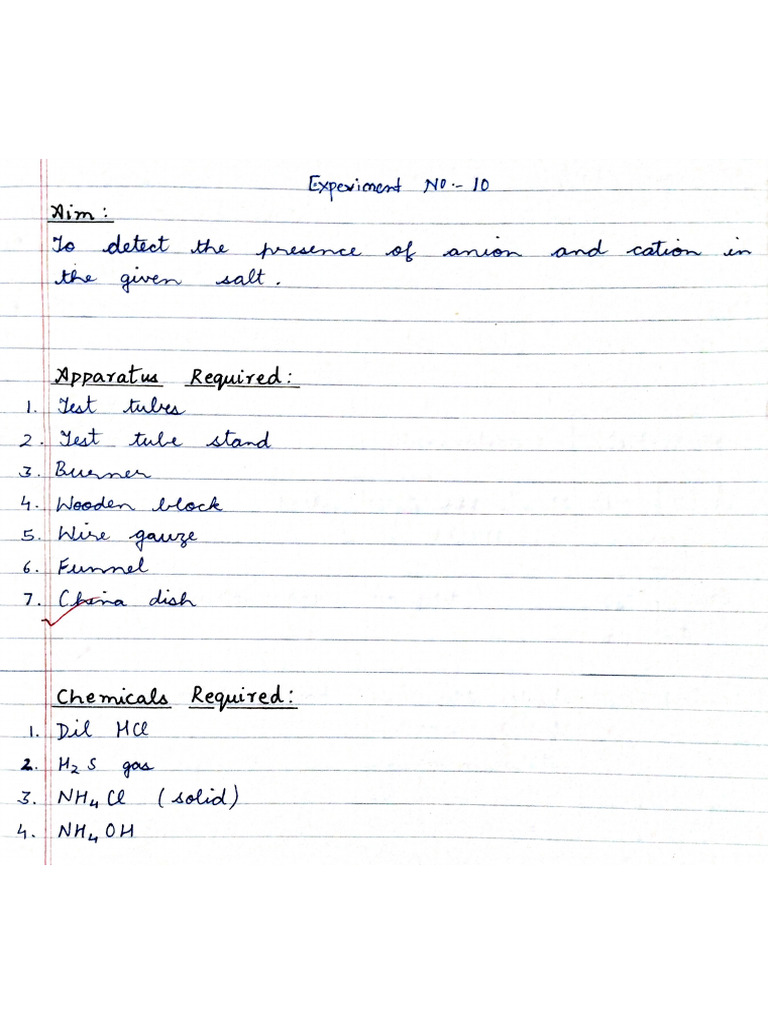 Experiment No:- 10
Aim:
To detect the presence of anion and cation in
the given salt.
Apparatus Required:
1. Test tubes
2. Test tube stand
3. Burner
4. Wooden block
5. Wire gauze
6. Funnel
7. China dish
Chemicals Required:
1. Dil HCl
2. H₂S gas
3. NH₄Cl (solid)
4. NH₄OH